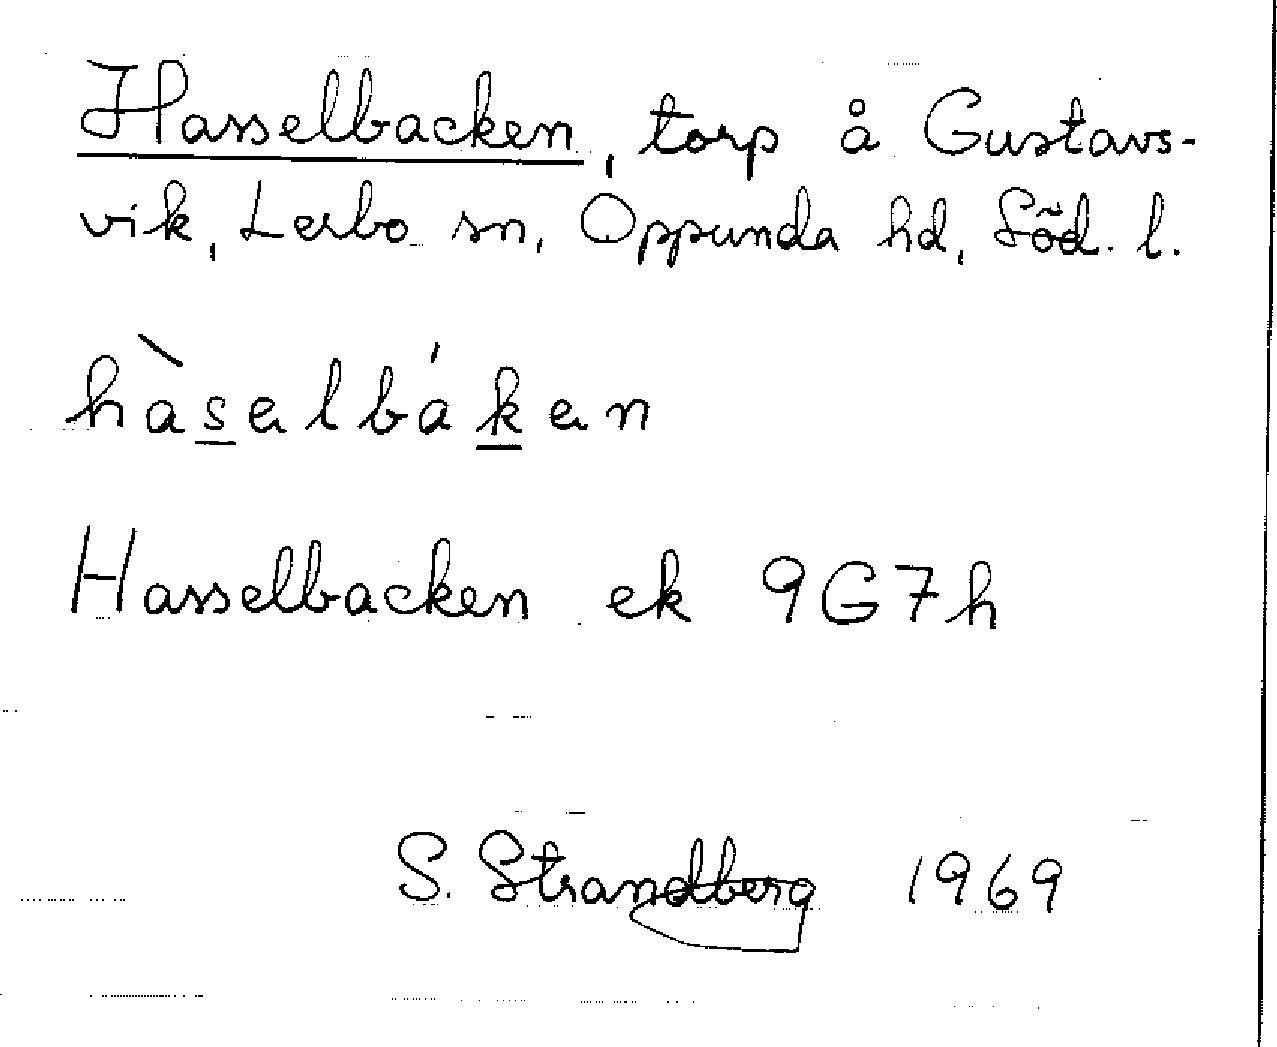 Hasselbacken, torp å Gustavs-
vik, Lerbo sn, Oppunda hd, Söd. l.
hàsₔlbákₔn
Hasselbacken ek 9G7h
S. Strandberg 1969